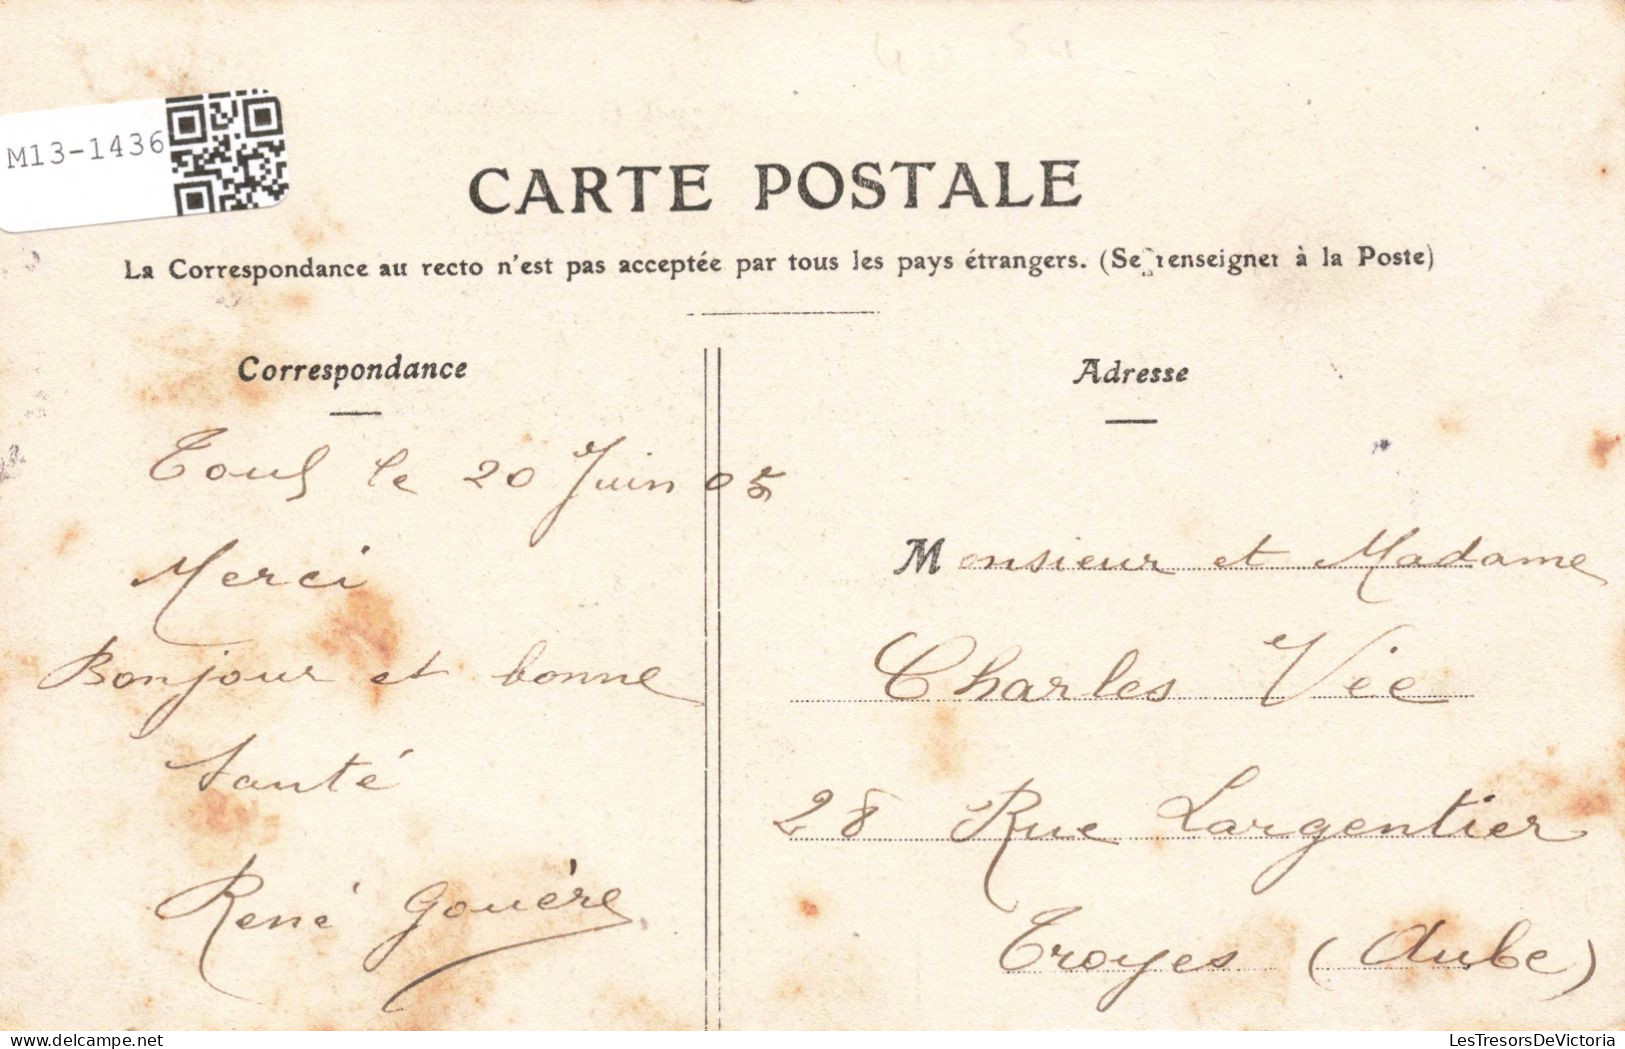 M13-1436
CARTE POSTALE
La Correspondance au recto n'est pas acceptée par tous les pays étrangers. (Se renseigner à la Poste)
Correspondance
Toul le 20 Juin 05
Merci
Bonjour et bonne
Santé
René Gouére
Adresse
Monsieur et Madame
Charles Vée
28 Rue Largentier
Troyes (Aube)
delcampe.net
LesTresorsDeVictoria